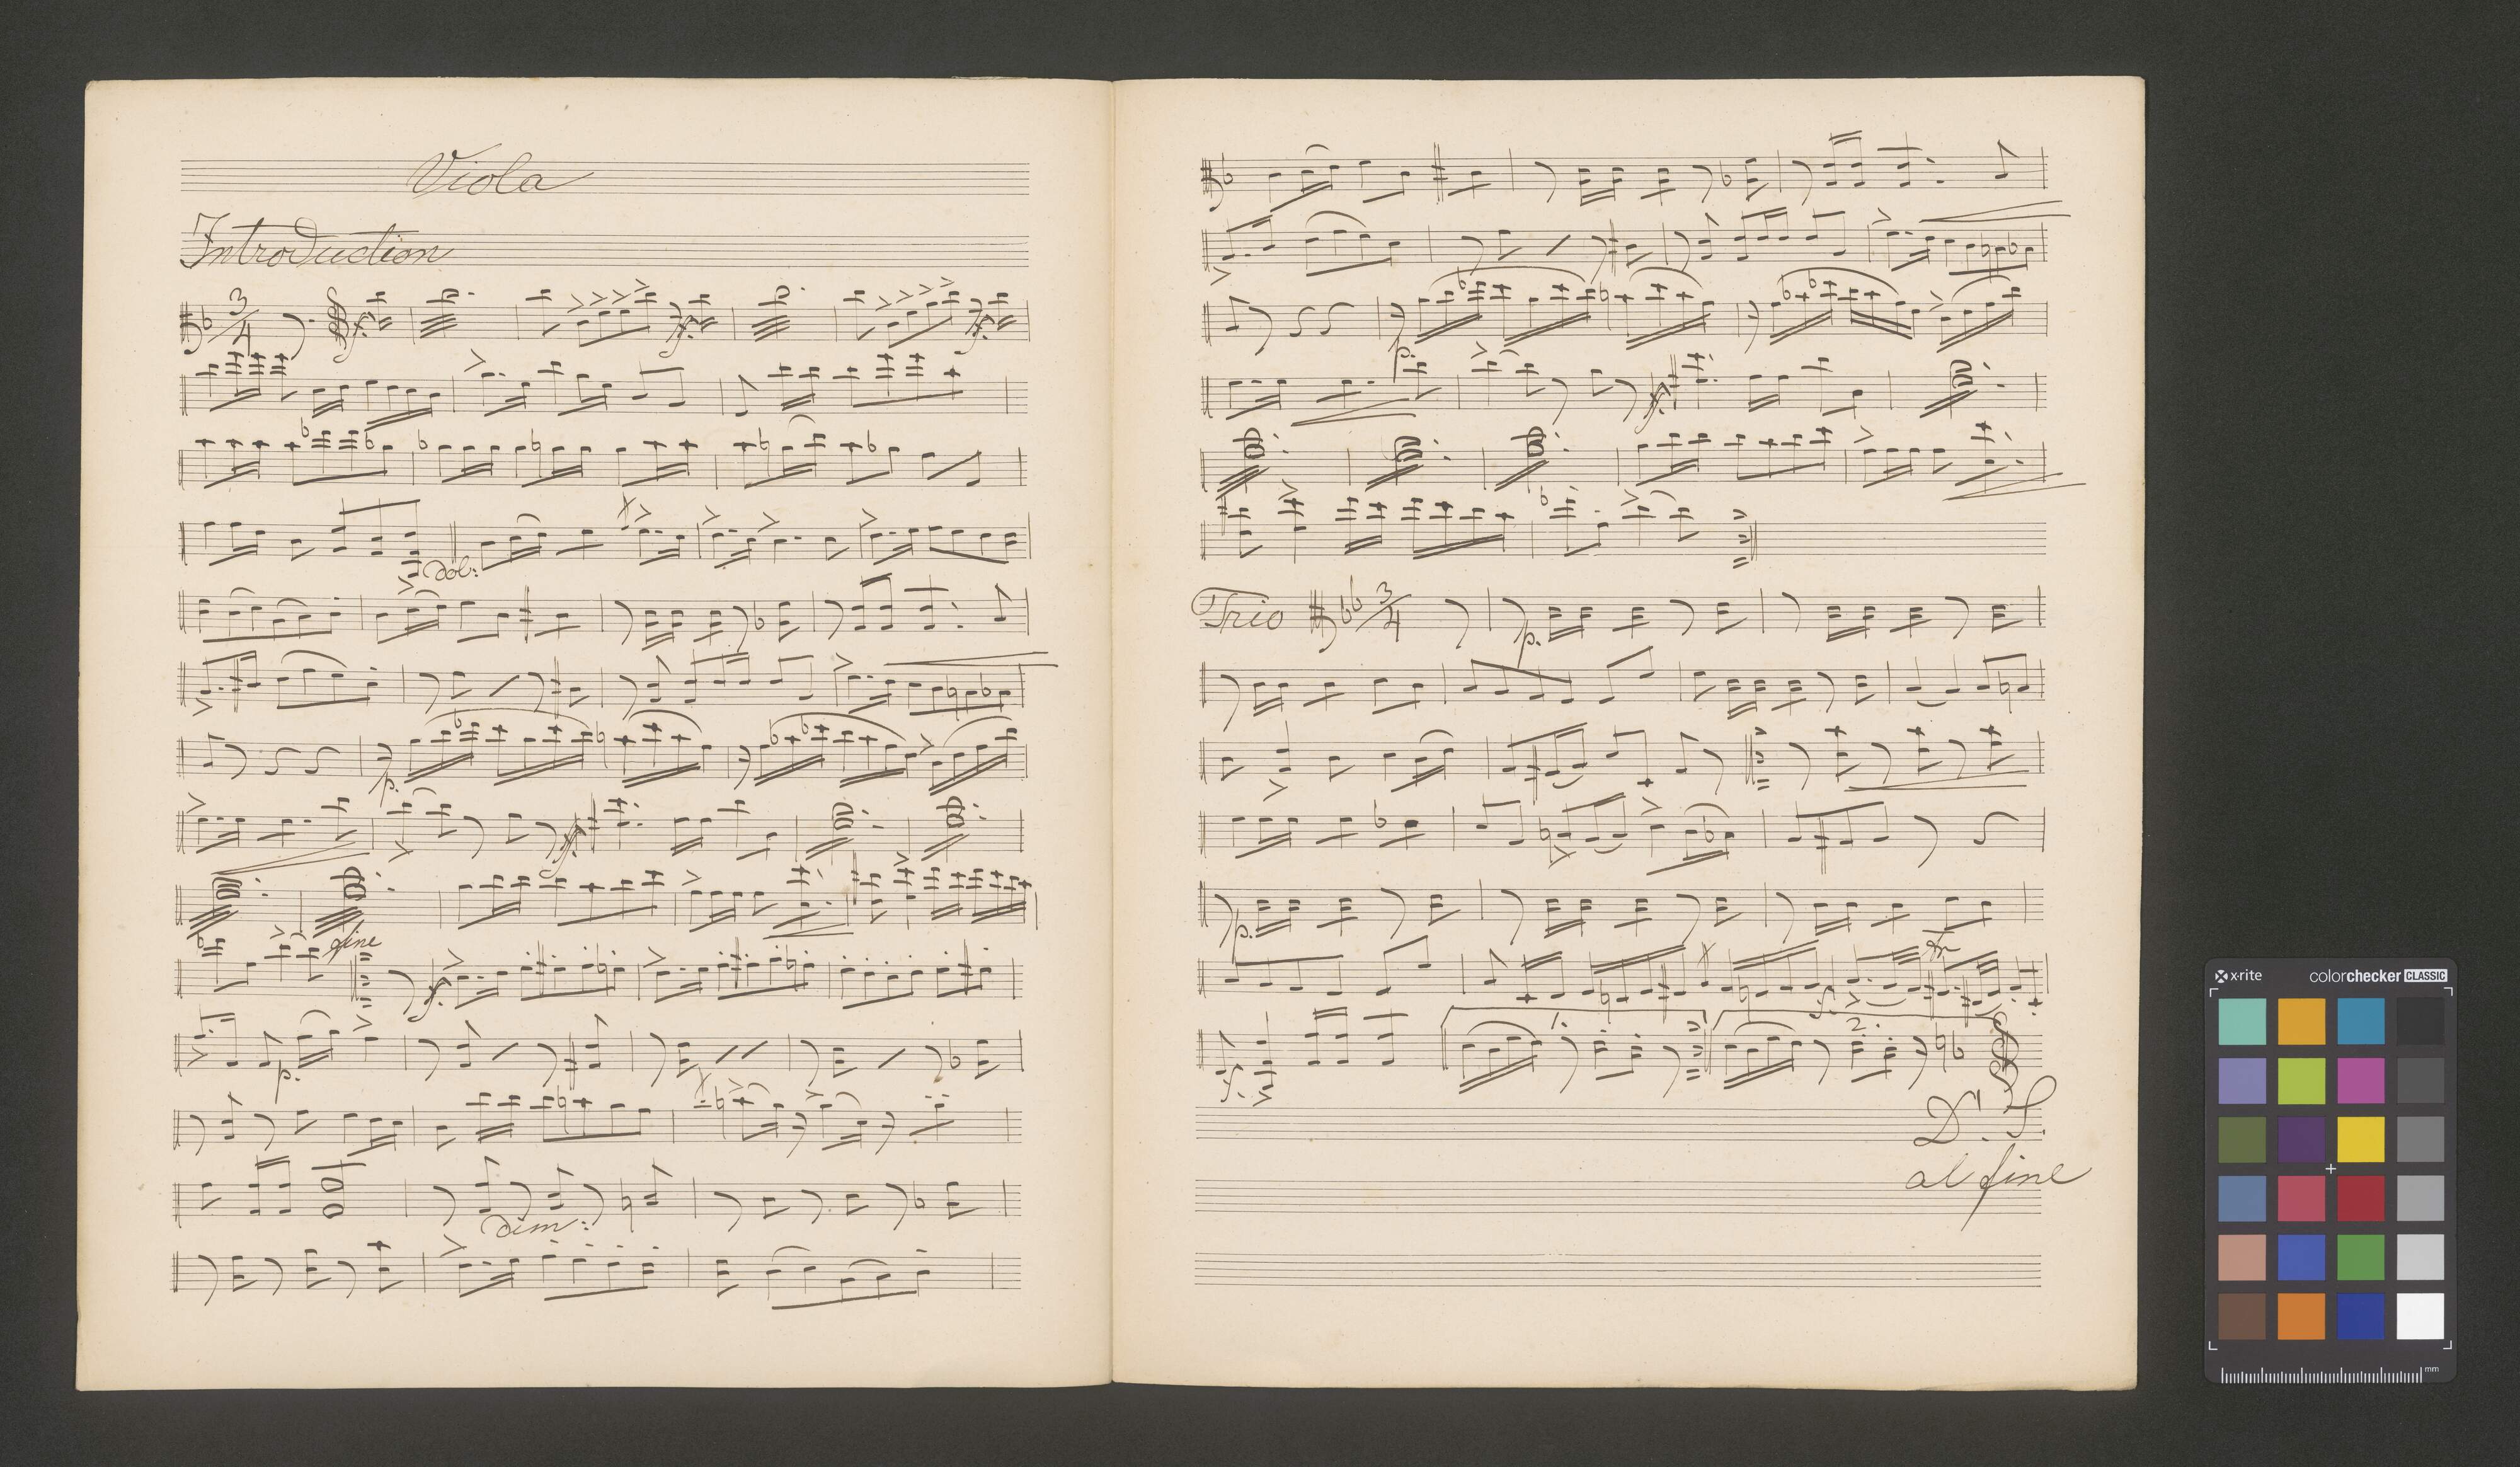 Viola
Introduction
3/4
f.
f.
f.
dol:
p.
f.
fine
f.
p.
dim:
p.
f.
Trio 3/4
p.
p.
tr
f.
1. 2.
f.
D. S.
al fine
x-rite colorchecker CLASSIC
mm